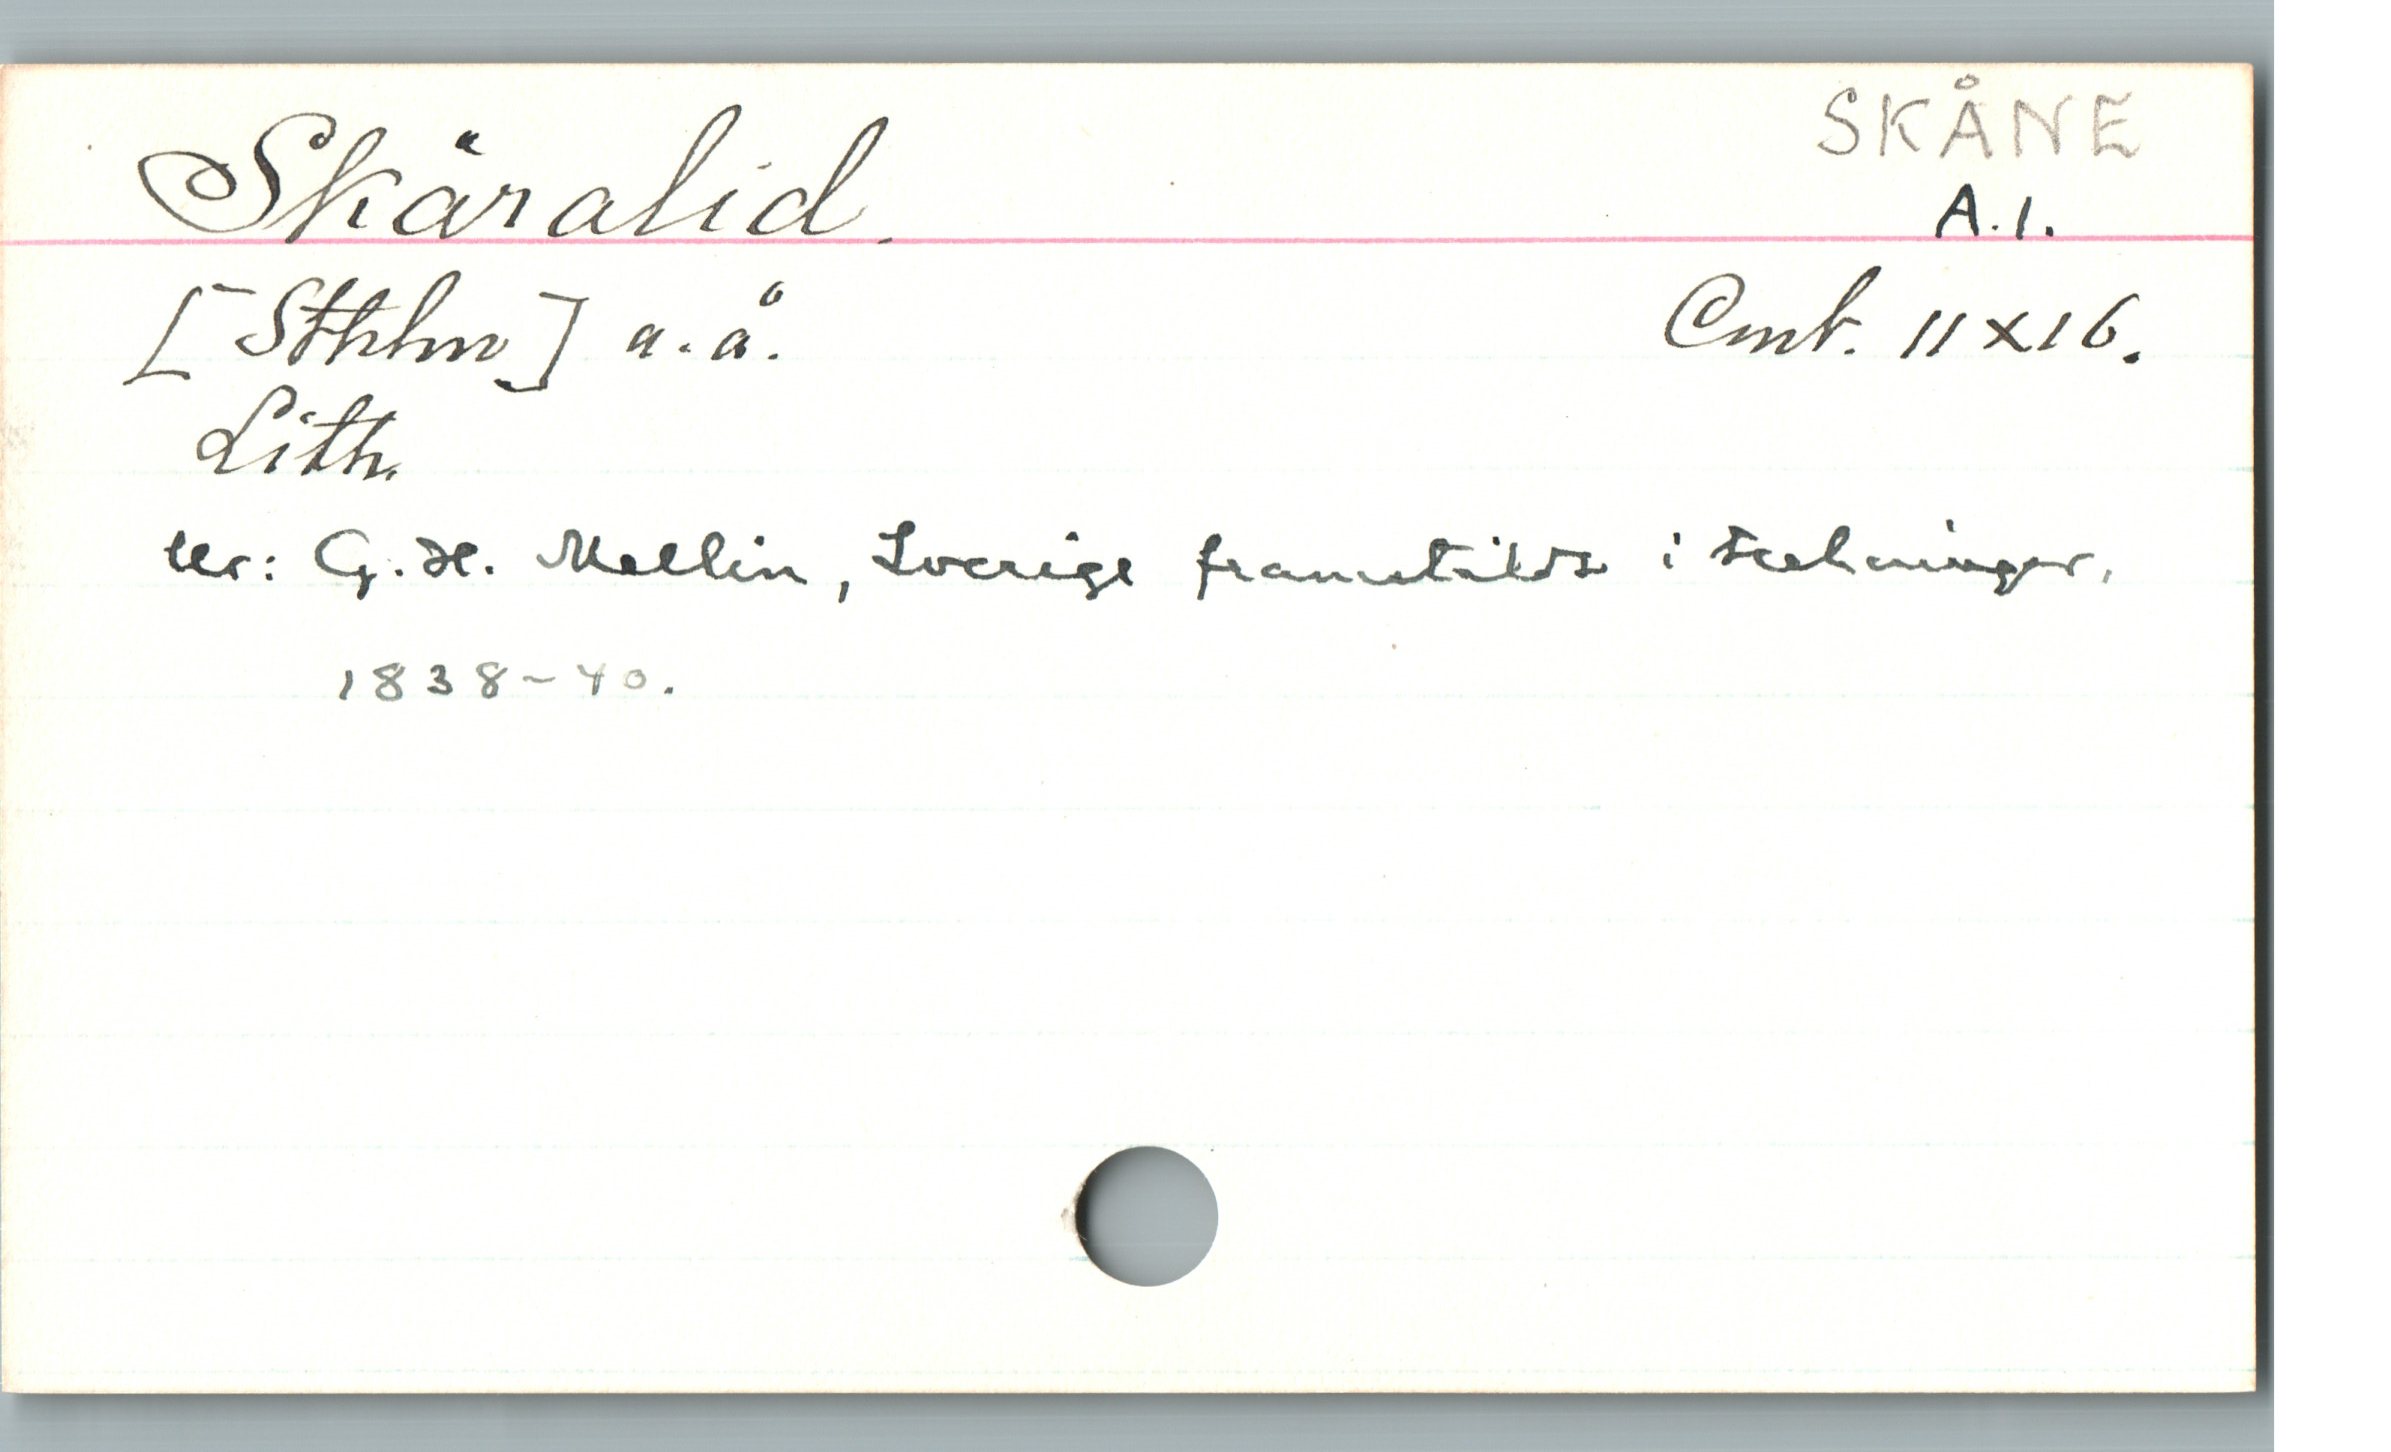 SKÅNE
Skäralid.
A.1.
[Sthlm] u.å.
Cmt. 11x16.
Lith.
Ur: G.H. Mellin, Sverige framställdt i teckningar,
1838-40.